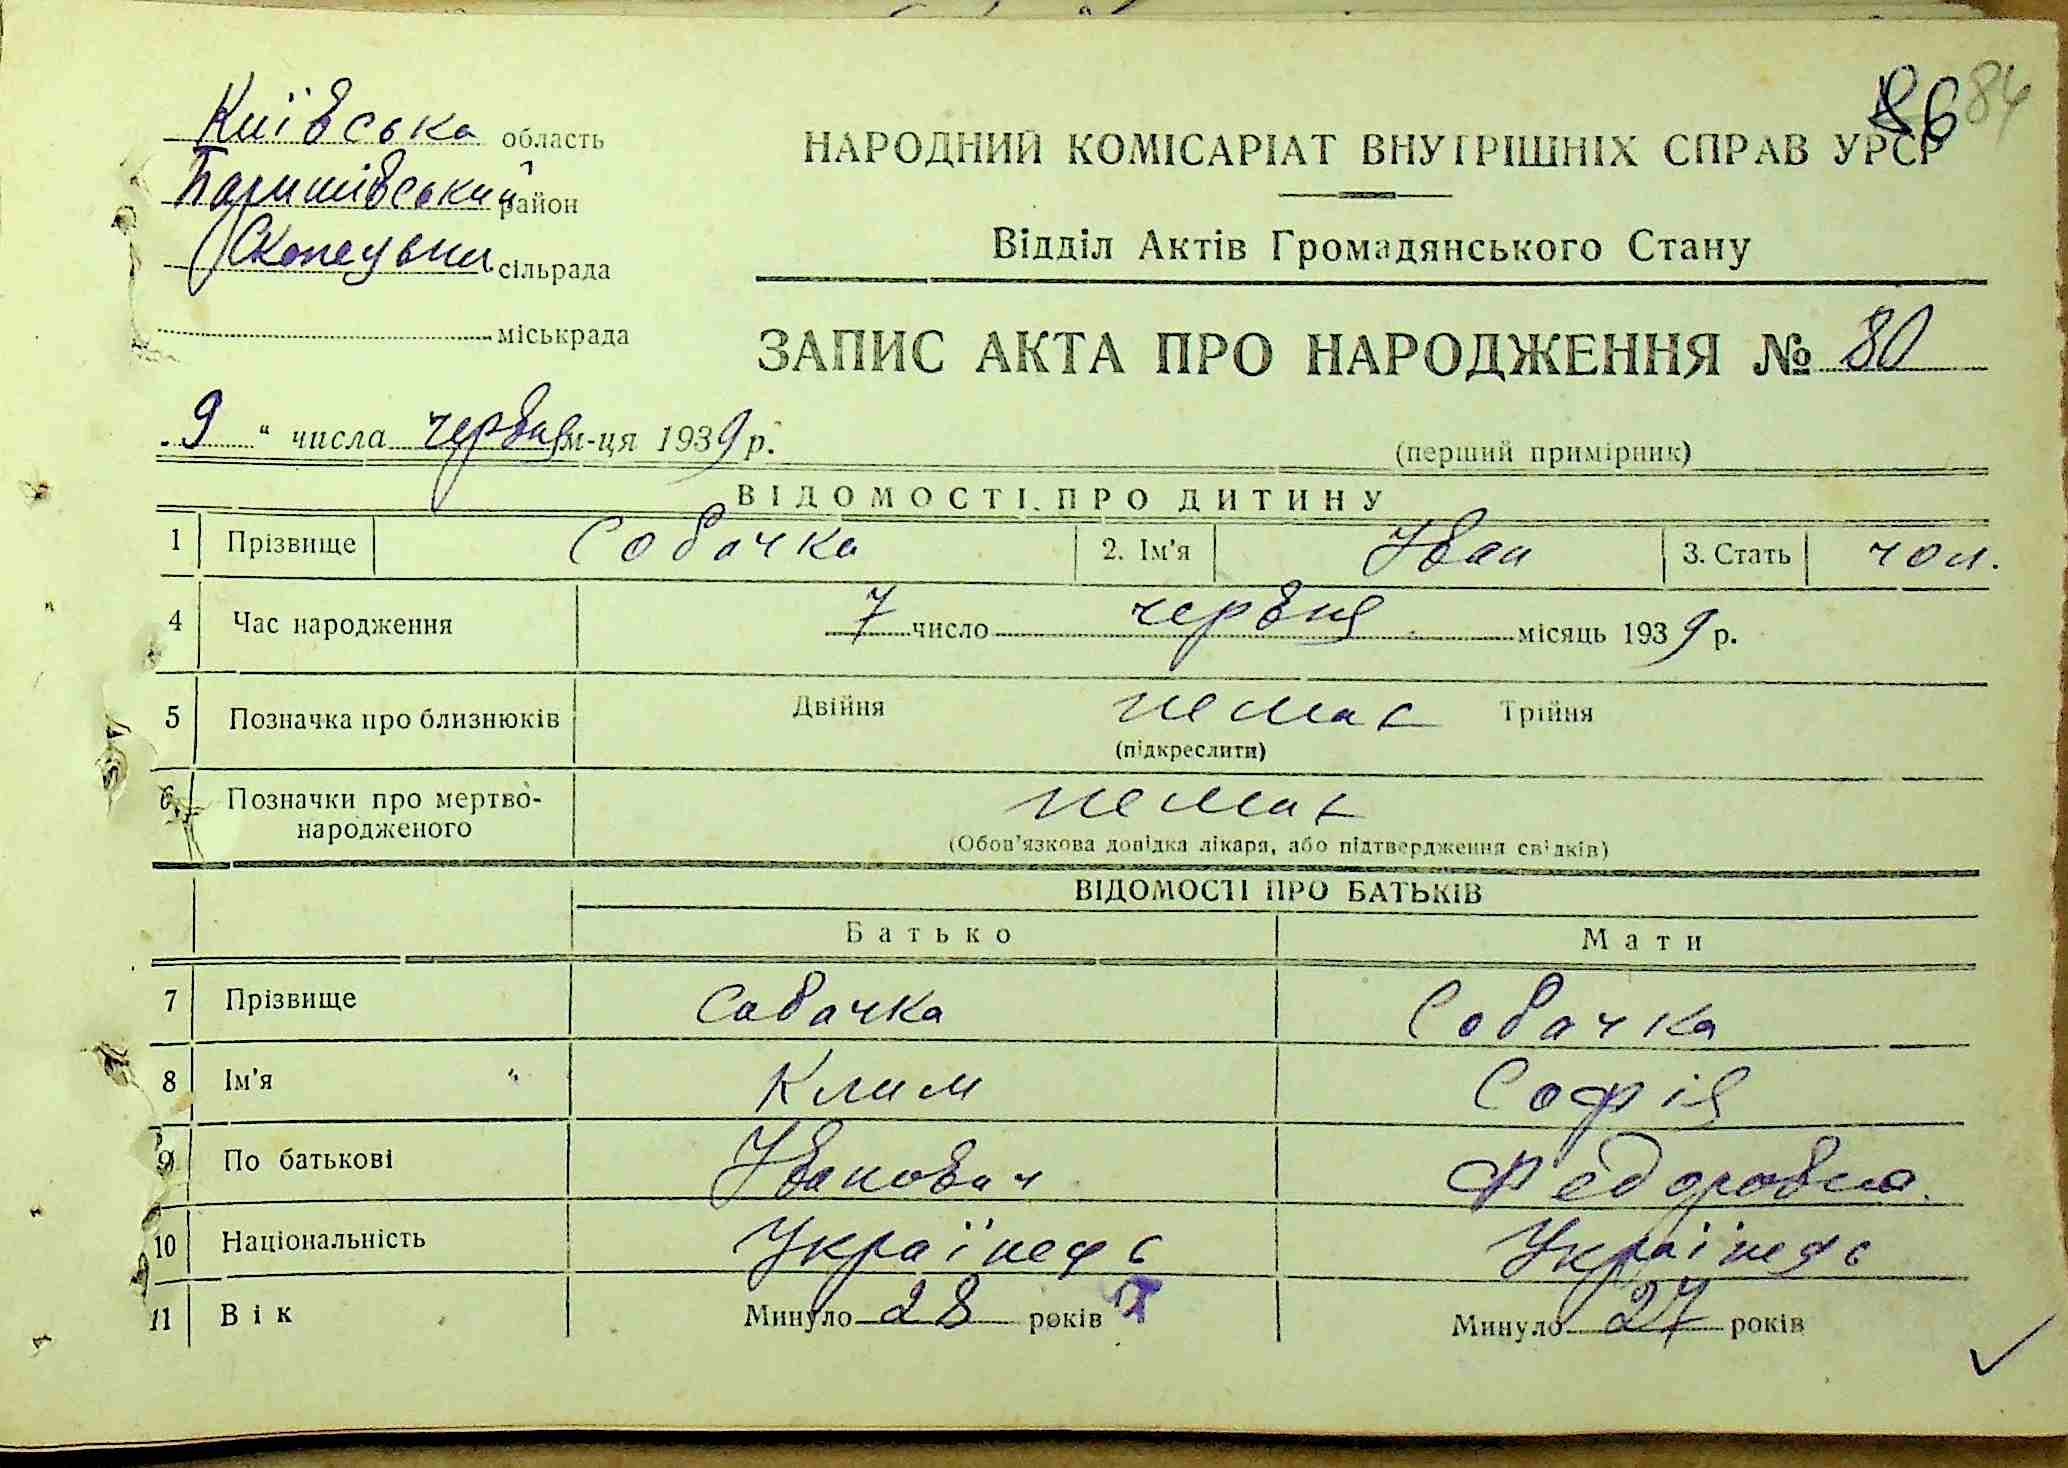 86 84
Київська область
Баришівський район
Скопецька сільрада
міськрада
НАРОДНИЙ КОМІСАРІАТ ВНУТРІШНІХ СПРАВ УРСР
Відділ Актів Громадянського Стану
ЗАПИС АКТА ПРО НАРОДЖЕННЯ № 80
„9“ числа червня м-ця 1939 р.
(перший примірник)
ВІДОМОСТІ ПРО ДИТИНУ
1 Прізвище Собачка 2. Ім'я Іван 3. Стать чол.
4 Час народження 7 число червня місяць 1939 р.
5 Позначка про близнюків Двійня немає Трійня
(підкреслити)
6 Позначки про мертво-
народженого немає
(Обов'язкова довідка лікаря, або підтвердження свідків)
ВІДОМОСТІ ПРО БАТЬКІВ
Батько Мати
7 Прізвище Собачка Собачка
8 Ім'я Клим Софія
9 По батькові Іванович Федоровна
10 Національність Українець Українець
11 Вік Минуло 28 років Минуло 27 років